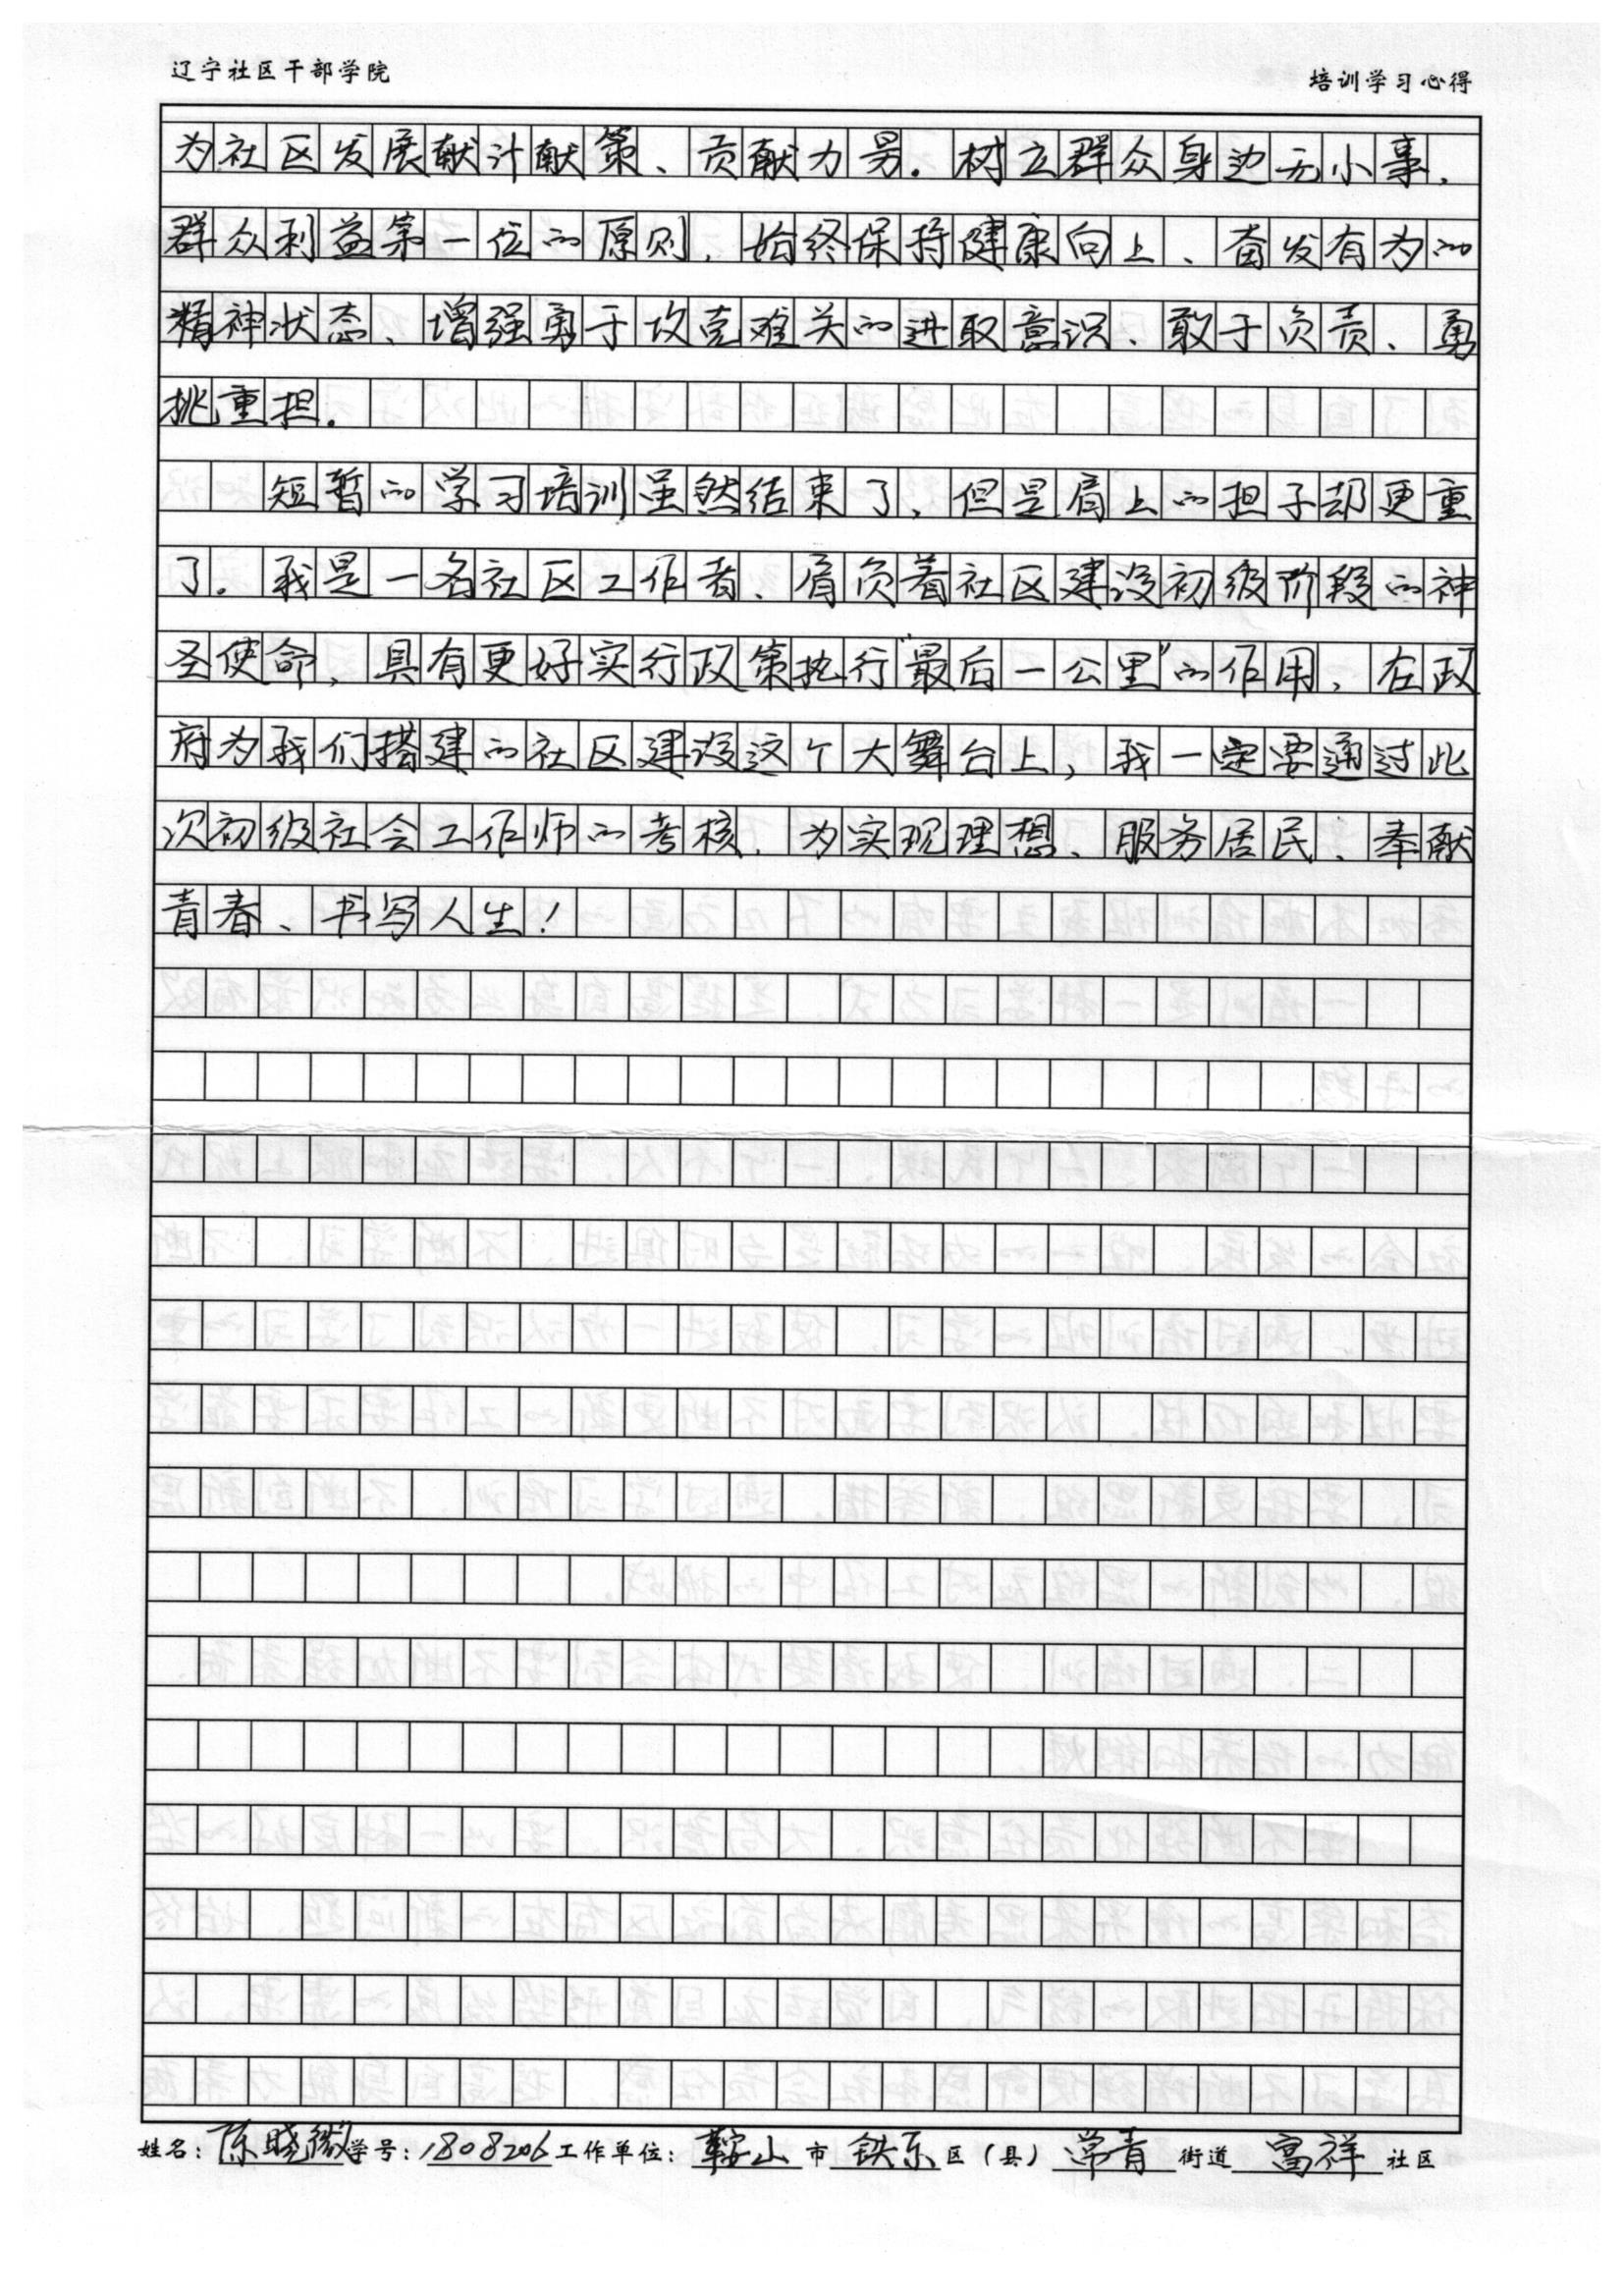 辽宁社区干部学院
培训学习心得
为社区发展献计献策、贡献力量。树立群众身边无小事，
群众利益第一位的原则，始终保持健康向上、奋发有为的
精神状态、增强勇于攻克难关的进取意识、敢于负责、勇
挑重担。
短暂的学习培训虽然结束了，但是肩上的担子却更重
了。我是一名社区工作者、肩负着社区建设初级阶段的神
圣使命，具有更好实行政策执行“最后一公里”的作用，在政
府为我们搭建的社区建设这个大舞台上，我一定要通过此
次初级社会工作师的考核，为实现理想、服务居民、奉献
青春、书写人生！
姓名：陈晓微学号：1808206工作单位：鞍山市铁东区（县）常青街道富祥社区